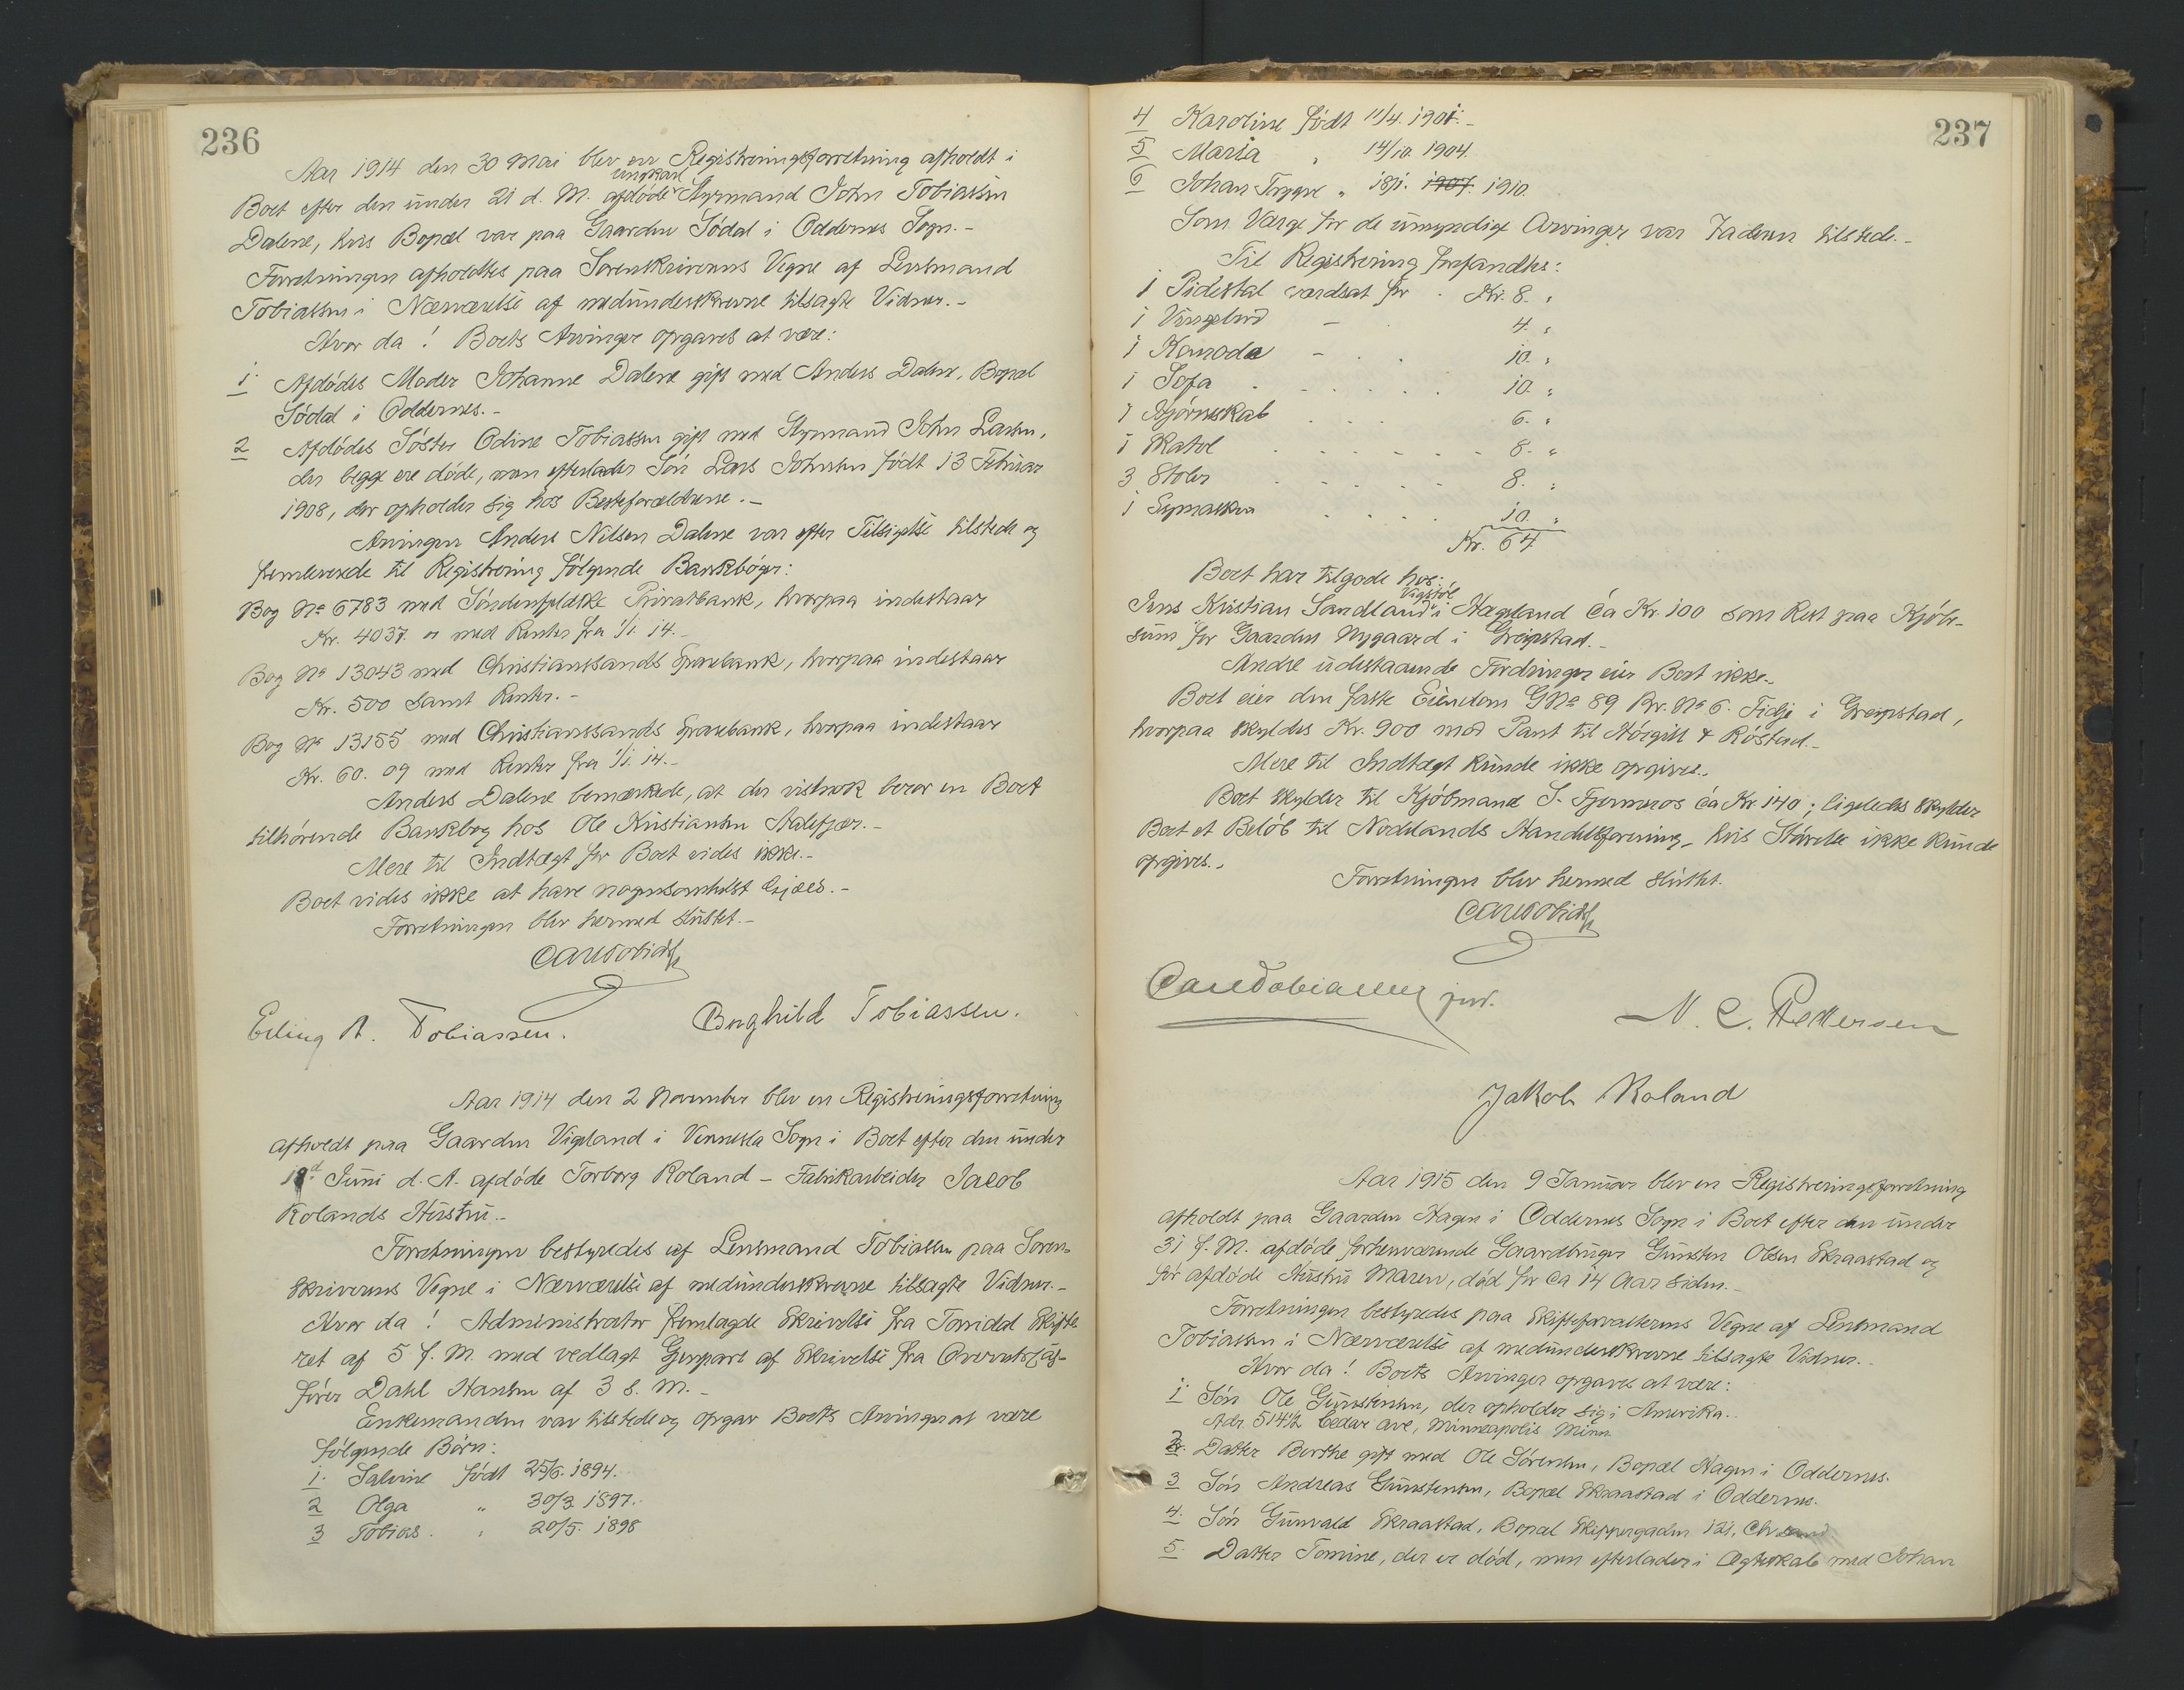 236
Aar 1914 den 30 Mai blev en Registreringsforretning afholdt i
ungkarl
Boet efter den under 21 d. M. afdøde Styrmand John Tobiassen
Dalene, hvis Bopæl var paa Gaarden Sødal i Oddernes Sogn.-
Forretningen afholdtes paa Sorenskriverens Vegne af Lensmand
Tobiassen i Nærværelse af medunderskrevne tilsagte Vidner.-
Hvor da! Boets Arvinger opgaves at være:
1. Afdødes Moder Johanne Dalene gift med Anders Dalene, Bopæl
Sødal i Oddernes.-
2 Afdødes Søster Odine Tobiassen gift med Styrmand John Larsen,
der begge ere døde, men efterlader Søn Lars Johnsen født 13 Februar
1908, der opholder sig hos Bestefor­ældrene.-
Arvingen Anders Nilsen Dalene var efter Tilsigelse tilstede og
fremleverede til Registrering følgende Bankbøger:
Bog No 6783 med Søndenfjeldske Privatbank, hvorpaa indestaar
Kr. 4037. og med Renter fra 1/1. 14.-
Bog No 13043 med Christianssands Sparebank, hvorpaa indestaar
Kr. 500 samt Renter.-
Bog No 13155 med Christianssands Sparebank, hvorpaa indestaar
Kr. 60. 09 med Renter fra 1/1. 14.-
Anders Dalene bemærkede, at der vistnok beror en Boet
tilhørende Bankbog hos Ole Kristiansen Aalefjær.-
Mere til Indtægt for Boet vides ikke.-
Boet vides ikke at have nogensomhelst Gjæld.-
Forretningen blev hermed sluttet.-
Carl Tobiassen
Erling A. Tobiassen. Borghild Tobiassen.
Aar 1914 den 2 November blev en Registreringsforretning
afholdt paa Gaarden Vigeland i Vennesla Sogn i Boet efter den under
Juni d. A. afdøde Torborg Roland - Fabrikarbeider Jacob
Rolands Hustru.-
Forretningen bestyredes af Lensmand Tobiassen paa Soren-
skriverens Vegne i Nærværelse af medunderskrevne tilsagte Vidner.-
Hvor da! Administrator fremlagde Skrivelse fra Torridal Skifte
ret af 5 f. M. med vedlagt Gjenpart af Skrivelse fra Overretssag-
fører Dahl Hansen af 3 s. M.-
Enkemanden var tilstede og opgav Boets Arvinger at være
følgende Børn:
1. Salvine født 25/6. 1894.
2 Olga " 30/3. 1897.
3 Tobias. " 20/5. 1898
237
4 Karoline født 11/4. 1901.-
5 Maria " 14/10. 1904.
6 Johan Trygve " 18/1. 1907. 1910.
Som Verge for de umyndige Arvinger var Faderen tilstede.-
Til Registrering forefandtes:
1 Pidestal værdsat for . Kr. 8. "
1 Vingebord - 4. "
1 Komode - . . 10. "
1 Sofa . . . . . 10. "
1 Hjørneskab . . . 6. "
1 Skatol . . . . . 8. "
3 Stoler . . . . 8. "
1 Symaskin . . . . 10. "
Kr. 64
Boet har tilgode hos:
Vigstøl
Jens Kristian Sandland i Hægeland ca Kr. 100 som Rest paa Kjøbe-
sum for Gaarden Nygaard i Greipstad.-
Andre udestaaende Fordringer eier Boet ikke.-
Boet eier den faste Eiendom GNo 89 Br. No 6. Fidje i Greipstad,
hvorpaa skyldes Kr. 900 mod Pant til Høigilt & Røstad.-
Mere til Indtægt kunde ikke opgives.-
Boet skylder til Kjøbmand S. Fjermeros ca Kr. 140; ligeledes skylder
Boet et Beløb til Moddlands Handelsforening, hvis Størrelse ikke kunde
opgives.-
Forretningen blev hermed sluttet.
Carl Tobiassen
Carl Tobiassen jun. N. C. Pedersen
Jakob Roland
Aar 1915 den 9 Januar blev en Registreringsforretning
afholdt paa Gaarden Hagen i Oddernes Sogn i Boet efter den under
31 f. M. afdøde forhenværende Gaardbruger Gunsten Olsen Skraastad og
før afdøde Hustru Maren, død for ca 14 Aar siden.-
Forretningen bestyredes paa Skifteforvalterens Vegne af Lensmand
Tobiassen i Nærværelse af medunderskrevne tilsagte Vidner.-
Hvor da! Boets Arvinger opgaves at være:
1. Søn Ole Gunstensen, der opholder sig i Amerika.
Adr. 514 1/2 Cedar ave, Minneapolis Minn.
2 Datter Berthe gift med Ole Sørensen, Bopæl Hagen i Oddernes.
3 Søn Andreas Gunstensen, Bopæl Skraastad i Oddernes.
4. Søn Gunvald Skraastad, Bopæl Skippergaden 121, Chrsand.
5. Datter Tomine, der er død, men efterlader i Ægteskab med Johan